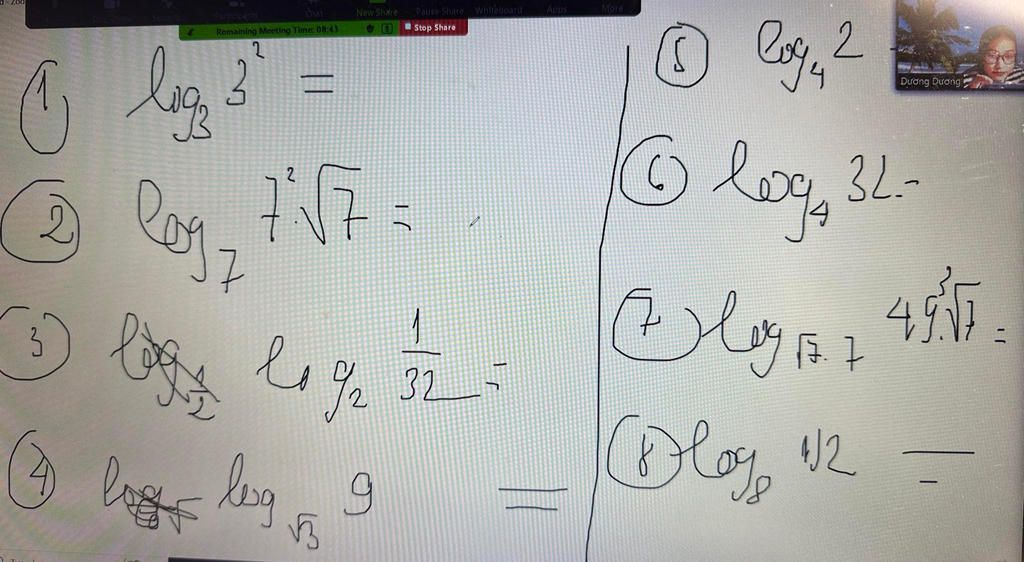 Chat
New Share
Pause Share
Whiteboard
Apps
More
Remaining Meeting Time: 08:43
Stop Share
Dương Dương
1 log₃ 3² =
2 log₇ 7².√7 =
3 log₂ 1/32 =
4 log√3 9 =
5 log₄ 2 -
6 log₄ 32 =
7 log√7.7 49.³√7 =
8 log₈ 1/2 =